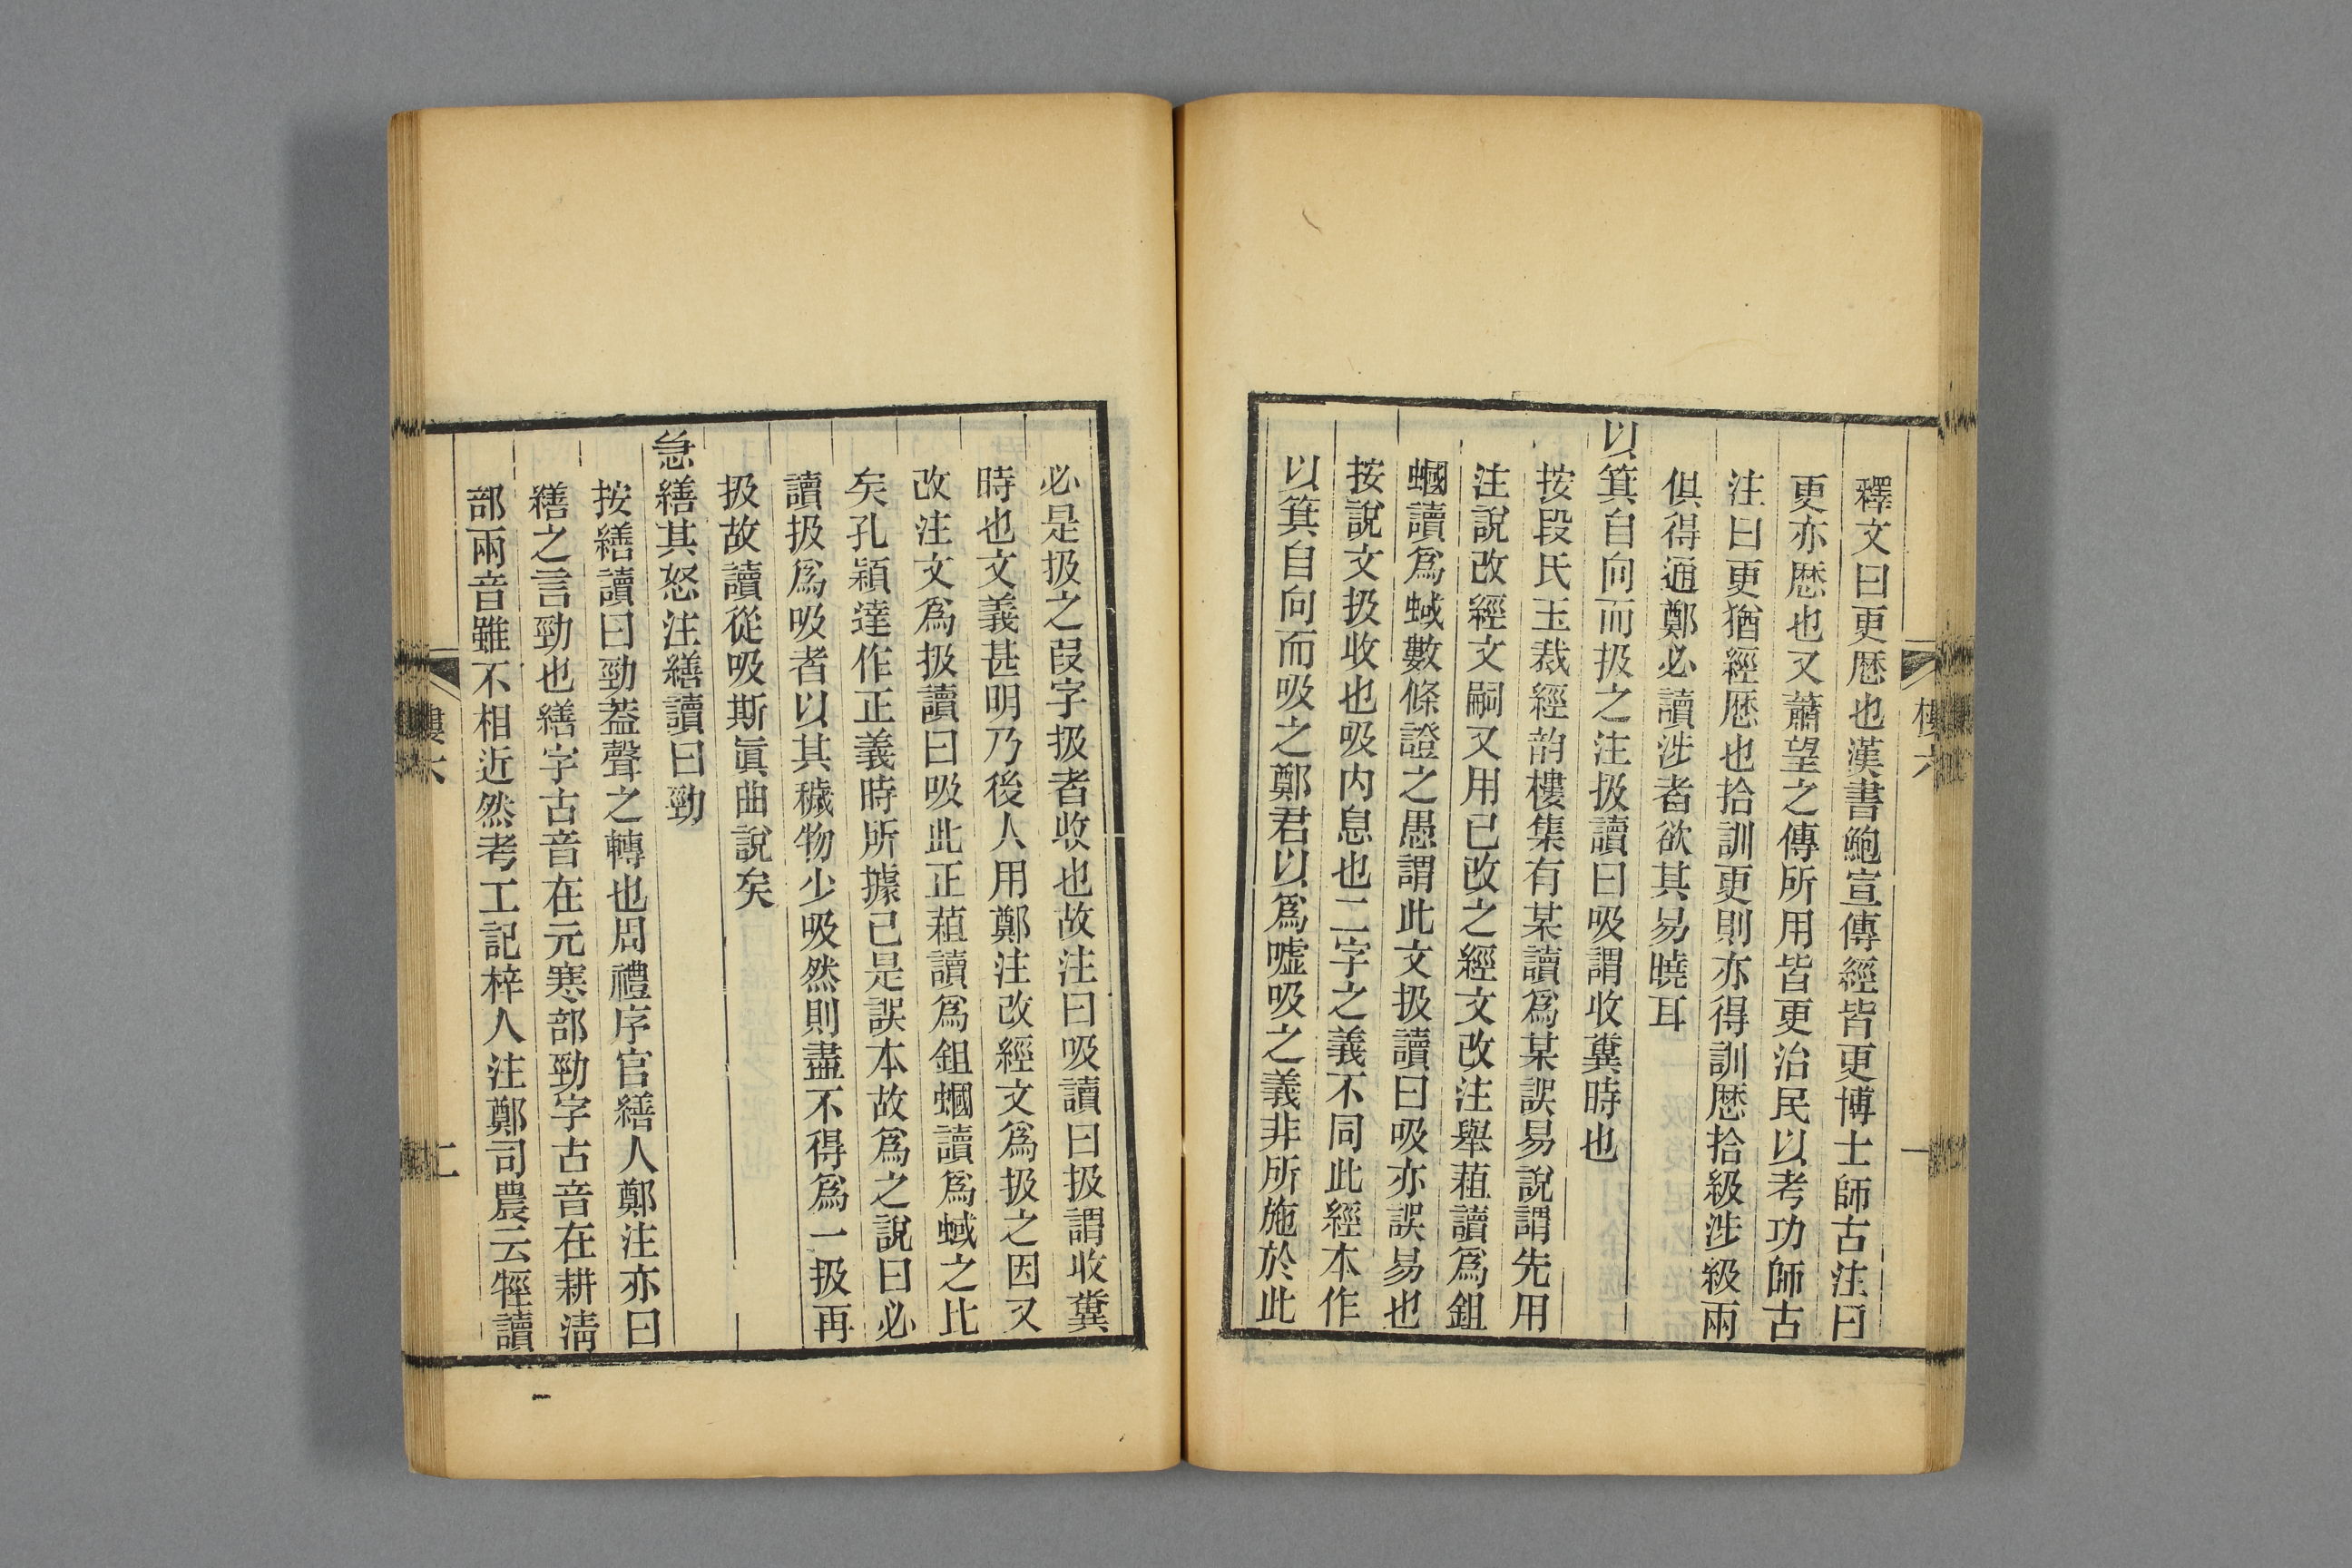 釋文曰更歴也漢書鮑宣傳經皆更博士師古注曰
更亦歴也又蕭望之傳所用皆更治民以考功師古
注曰更猶經歴也拾訓更則亦得訓歴拾級涉級兩
俱得通鄭必讀涉者欲其易曉耳
以箕自向而扱之注扱讀曰吸謂收糞時也
按段氏玉裁經韵樓集有某讀爲某誤易說謂先用
注說改經文嗣又用已改之經文改注舉蒩讀爲鉏
蟈讀爲蜮數條證之愚謂此文扱讀曰吸亦誤易也
按說文扱收也吸内息也二字之義不同此經本作
以箕自向而吸之鄭君以爲嘘吸之義非所施於此
樓六
一
必是扱之叚字扱者收也故注曰吸讀曰扱謂收糞
時也文義甚明乃後人用鄭注改經文爲扱之因又
改注文爲扱讀曰吸此正蒩讀爲鉏蟈讀爲蜮之比
矣孔穎達作正義時所據已是誤本故爲之說曰必
讀扱爲吸者以其穢物少吸然則盡不得爲一扱再
扱故讀從吸斯眞曲說矣
急繕其怒注繕讀曰勁
按繕讀曰勁葢聲之轉也周禮序官繕人鄭注亦曰
繕之言勁也繕字古音在元寒部勁字古音在耕淸
部兩音雖不相近然考工記梓人注鄭司農云牼讀
樓六
二